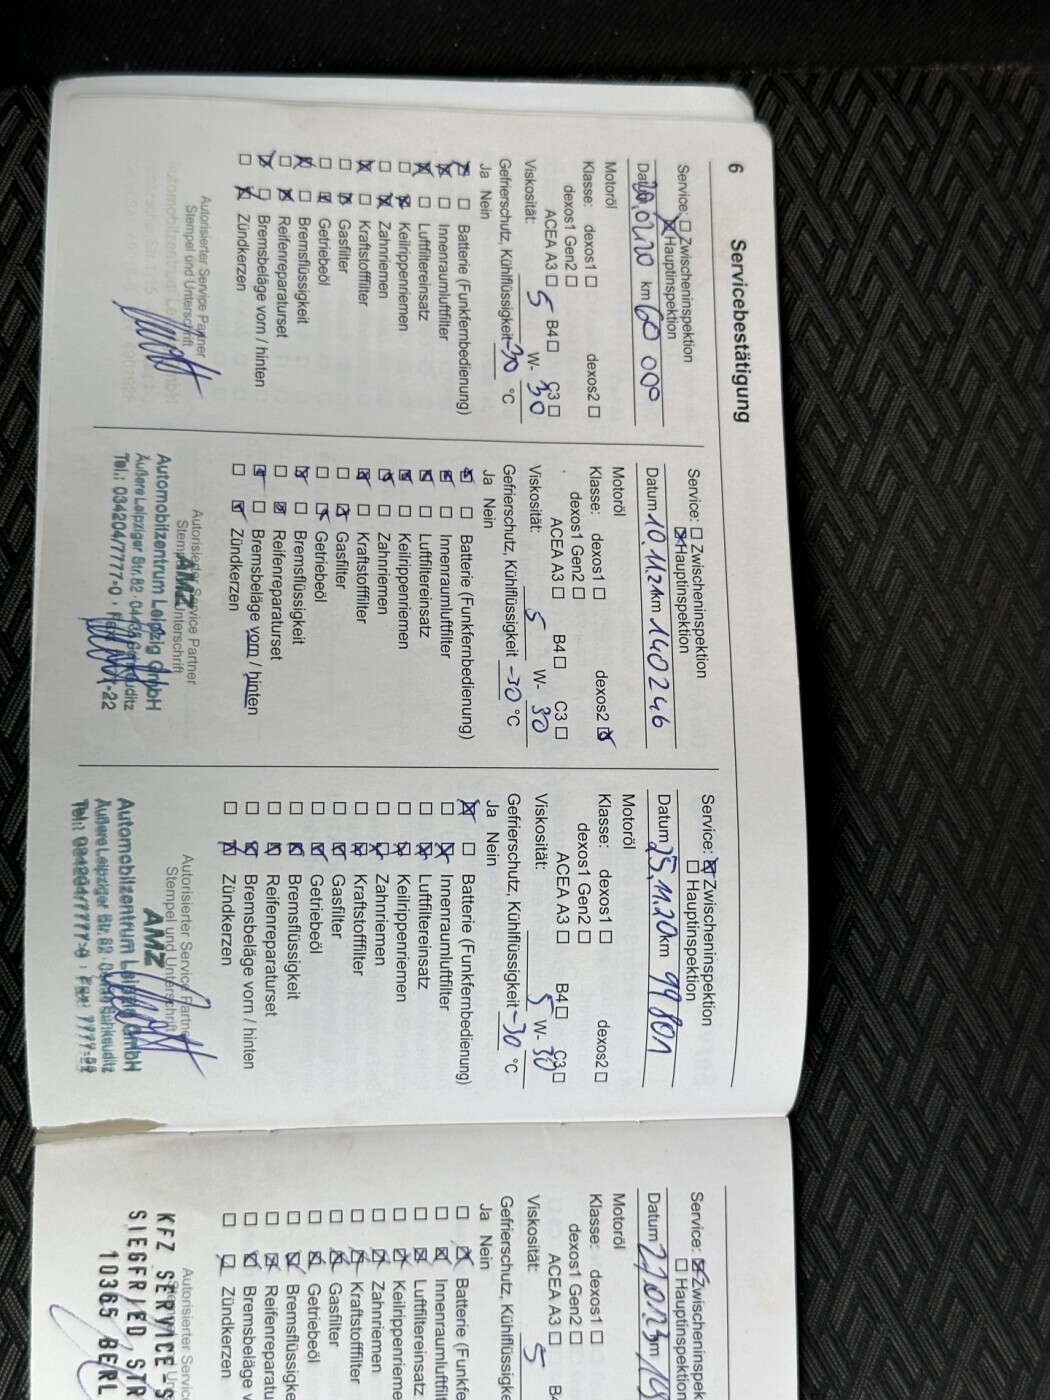 6 Servicebestätigung
Service: Zwischeninspektion
Hauptinspektion
Datum km 60 000
Motoröl
Klasse: dexos1 dexos2
dexos1 Gen2
ACEA A3 B4 C3
Viskosität: 5 W- 30
Gefrierschutz, Kühlflüssigkeit -30 °C
Ja Nein
Batterie (Funkfernbedienung)
Innenraumluftfilter
Luftfiltereinsatz
Keilrippenriemen
Zahnriemen
Kraftstofffilter
Gasfilter
Getriebeöl
Bremsflüssigkeit
Reifenreparaturset
Bremsbeläge vorn / hinten
Zündkerzen
Autorisierter Service Partner
Stempel und Unterschrift
Service: Zwischeninspektion
Hauptinspektion
Datum 10.11.21 km 140246
Motoröl
Klasse: dexos1 dexos2
dexos1 Gen2
ACEA A3 B4 C3
Viskosität: 5 W- 30
Gefrierschutz, Kühlflüssigkeit °C
Ja Nein
Batterie (Funkfernbedienung)
Innenraumluftfilter
Luftfiltereinsatz
Keilrippenriemen
Zahnriemen
Kraftstofffilter
Gasfilter
Getriebeöl
Bremsflüssigkeit
Reifenreparaturset
Bremsbeläge vorn / hinten
Zündkerzen
Autorisierter Service Partner
Stempel Unterschrift
AMZ
Automobilzentrum Leipzig GmbH
Äußere Leipziger Str. 82
Tel.: 034204/7777-0
Service: Zwischeninspektion
Hauptinspektion
Datum 25.11.20 km 99801
Motoröl
Klasse: dexos1 dexos2
dexos1 Gen2
ACEA A3 B4 C3
Viskosität: 5 W- 30
Gefrierschutz, Kühlflüssigkeit -30 °C
Ja Nein
Batterie (Funkfernbedienung)
Innenraumluftfilter
Luftfiltereinsatz
Keilrippenriemen
Zahnriemen
Kraftstofffilter
Gasfilter
Getriebeöl
Bremsflüssigkeit
Reifenreparaturset
Bremsbeläge vorn / hinten
Zündkerzen
Autorisierter Service Partner
Stempel und Unterschrift
AMZ
Automobilzentrum Leipzig GmbH
Äußere Leipziger Str. 82
Tel.: 034204/7777-0 · Fax: 7777-22
Service: Zwischeninspek
Hauptinspektion
Datum km
Motoröl
Klasse: dexos1
dexos1 Gen2
ACEA A3 B4
Viskosität: 5
Gefrierschutz, Kühlflüssigke
Ja Nein
Batterie (Funkfe
Innenraumluftfil
Luftfiltereinsatz
Keilrippenrieme
Zahnriemen
Kraftstofffilter
Gasfilter
Getriebeöl
Bremsflüssigke
Reifenreparatu
Bremsbeläge v
Zündkerzen
Autorisierter Service
KFZ SERVICE-S
SIEGFRIED STR
10365 BERL